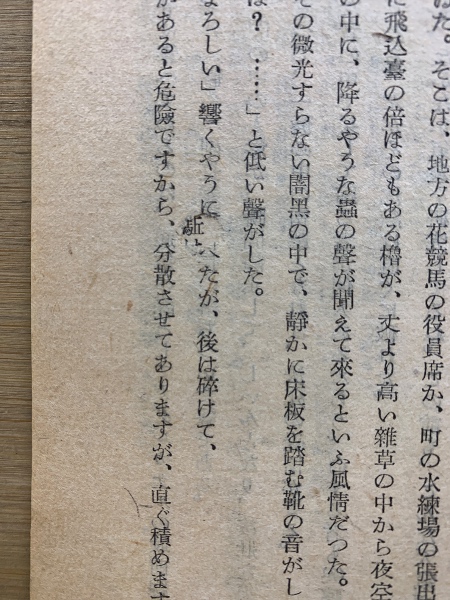 た。そこは、地方の花競馬の役員席か、町の水練場の張出
に飛込臺の倍ほどもある櫓が、丈より高い雜草の中から夜空
の中に、降るやうな蟲の聲が聞えて來るといふ風情だつた。
その微光すらない闇黒の中で、靜かに床板を踏む靴の音がし
は？……」と低い聲がした。
よろしい」響くやうに たが、後は碎けて、
があると危險ですから、分散させてありますが、直ぐ積めます